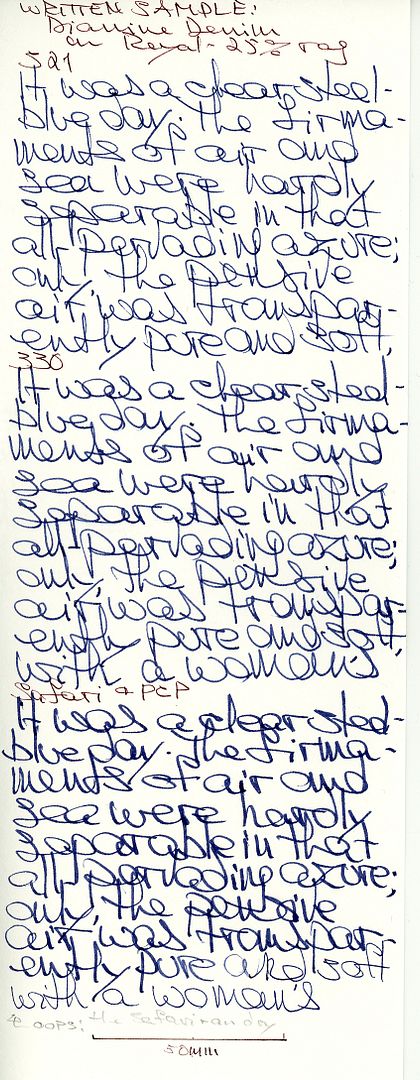 WRITTEN SAMPLE:
Diamine Denim
on Royal - 25% rag
521
It was a clear steel-
blue day. The firma-
ments of air and
sea were hardly
separable in that
all-pervading azure;
only, the pensive
air was transpar-
ently pure and soft,
330
It was a clear steel-
blue day. The firma-
ments of air and
sea were hardly
separable in that
all-pervading azure;
only, the pensive
air was transpar-
ently pure and soft,
with a woman's
Safari + PCP
It was a clear steel-
blue day. The firma-
ments of air and
sea were hardly
separable in that
all-pervading azure;
only, the pensive
air was transpar-
ently pure and soft
with a woman's
OOPS: the Safari ran dry
50mm